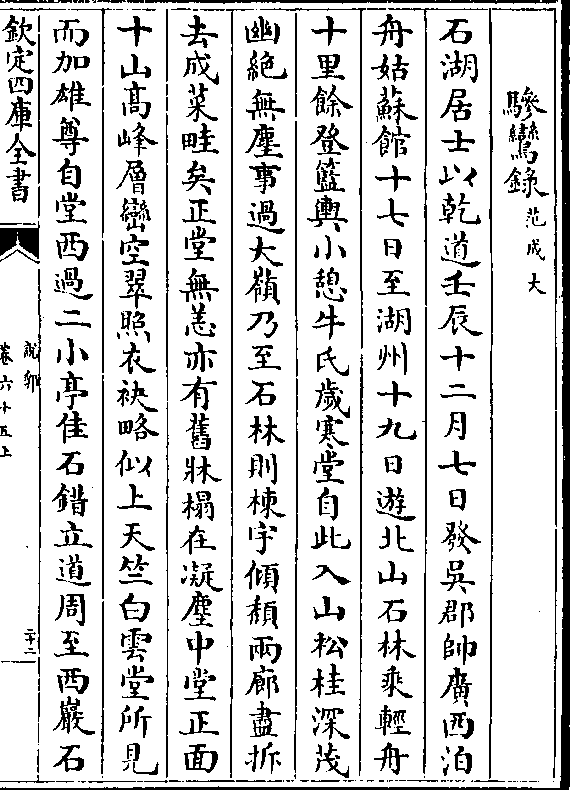 驂鸞錄 范成大
石湖居士以乾道壬辰十二月七日發吳郡帥廣西泊
舟姑蘇館十七日至湖州十九日遊北山石林乘輕舟
十里餘登籃輿小憩牛氏歲寒堂自此入山松桂深茂
幽絶無塵事過大嶺乃至石林則棟宇傾頹兩廊盡拆
去成菜畦矣正堂無恙亦有舊牀榻在凝塵中堂正面
十山高峰層巒空翠照衣袂略似上天竺白雲堂所見
而加雄尊自堂西過二小亭佳石錯立道周至西巖石
欽定四庫全書
說郛
卷六十五上
二十二